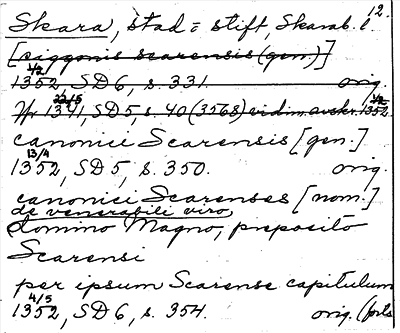 12
Skara, stad = stift, Skarab. l.
[siggonis scarensis (gen.)]
1/2
1352, SD 6, s. 331. orig.
22/5 1/2
Yr 1341, SD 5, s. 40 (3568) vidim. avskr. 1352
canonici Scarensis [gen.]
13/4
1352, SD 5, s. 350. orig.
canonici Scarenses [nom.]
de venerabili viro,
domino Magno, preposito
Scarensi
per ipsum Scarense capitulum
4/5
1352, SD 6, s. 354. orig. (forts